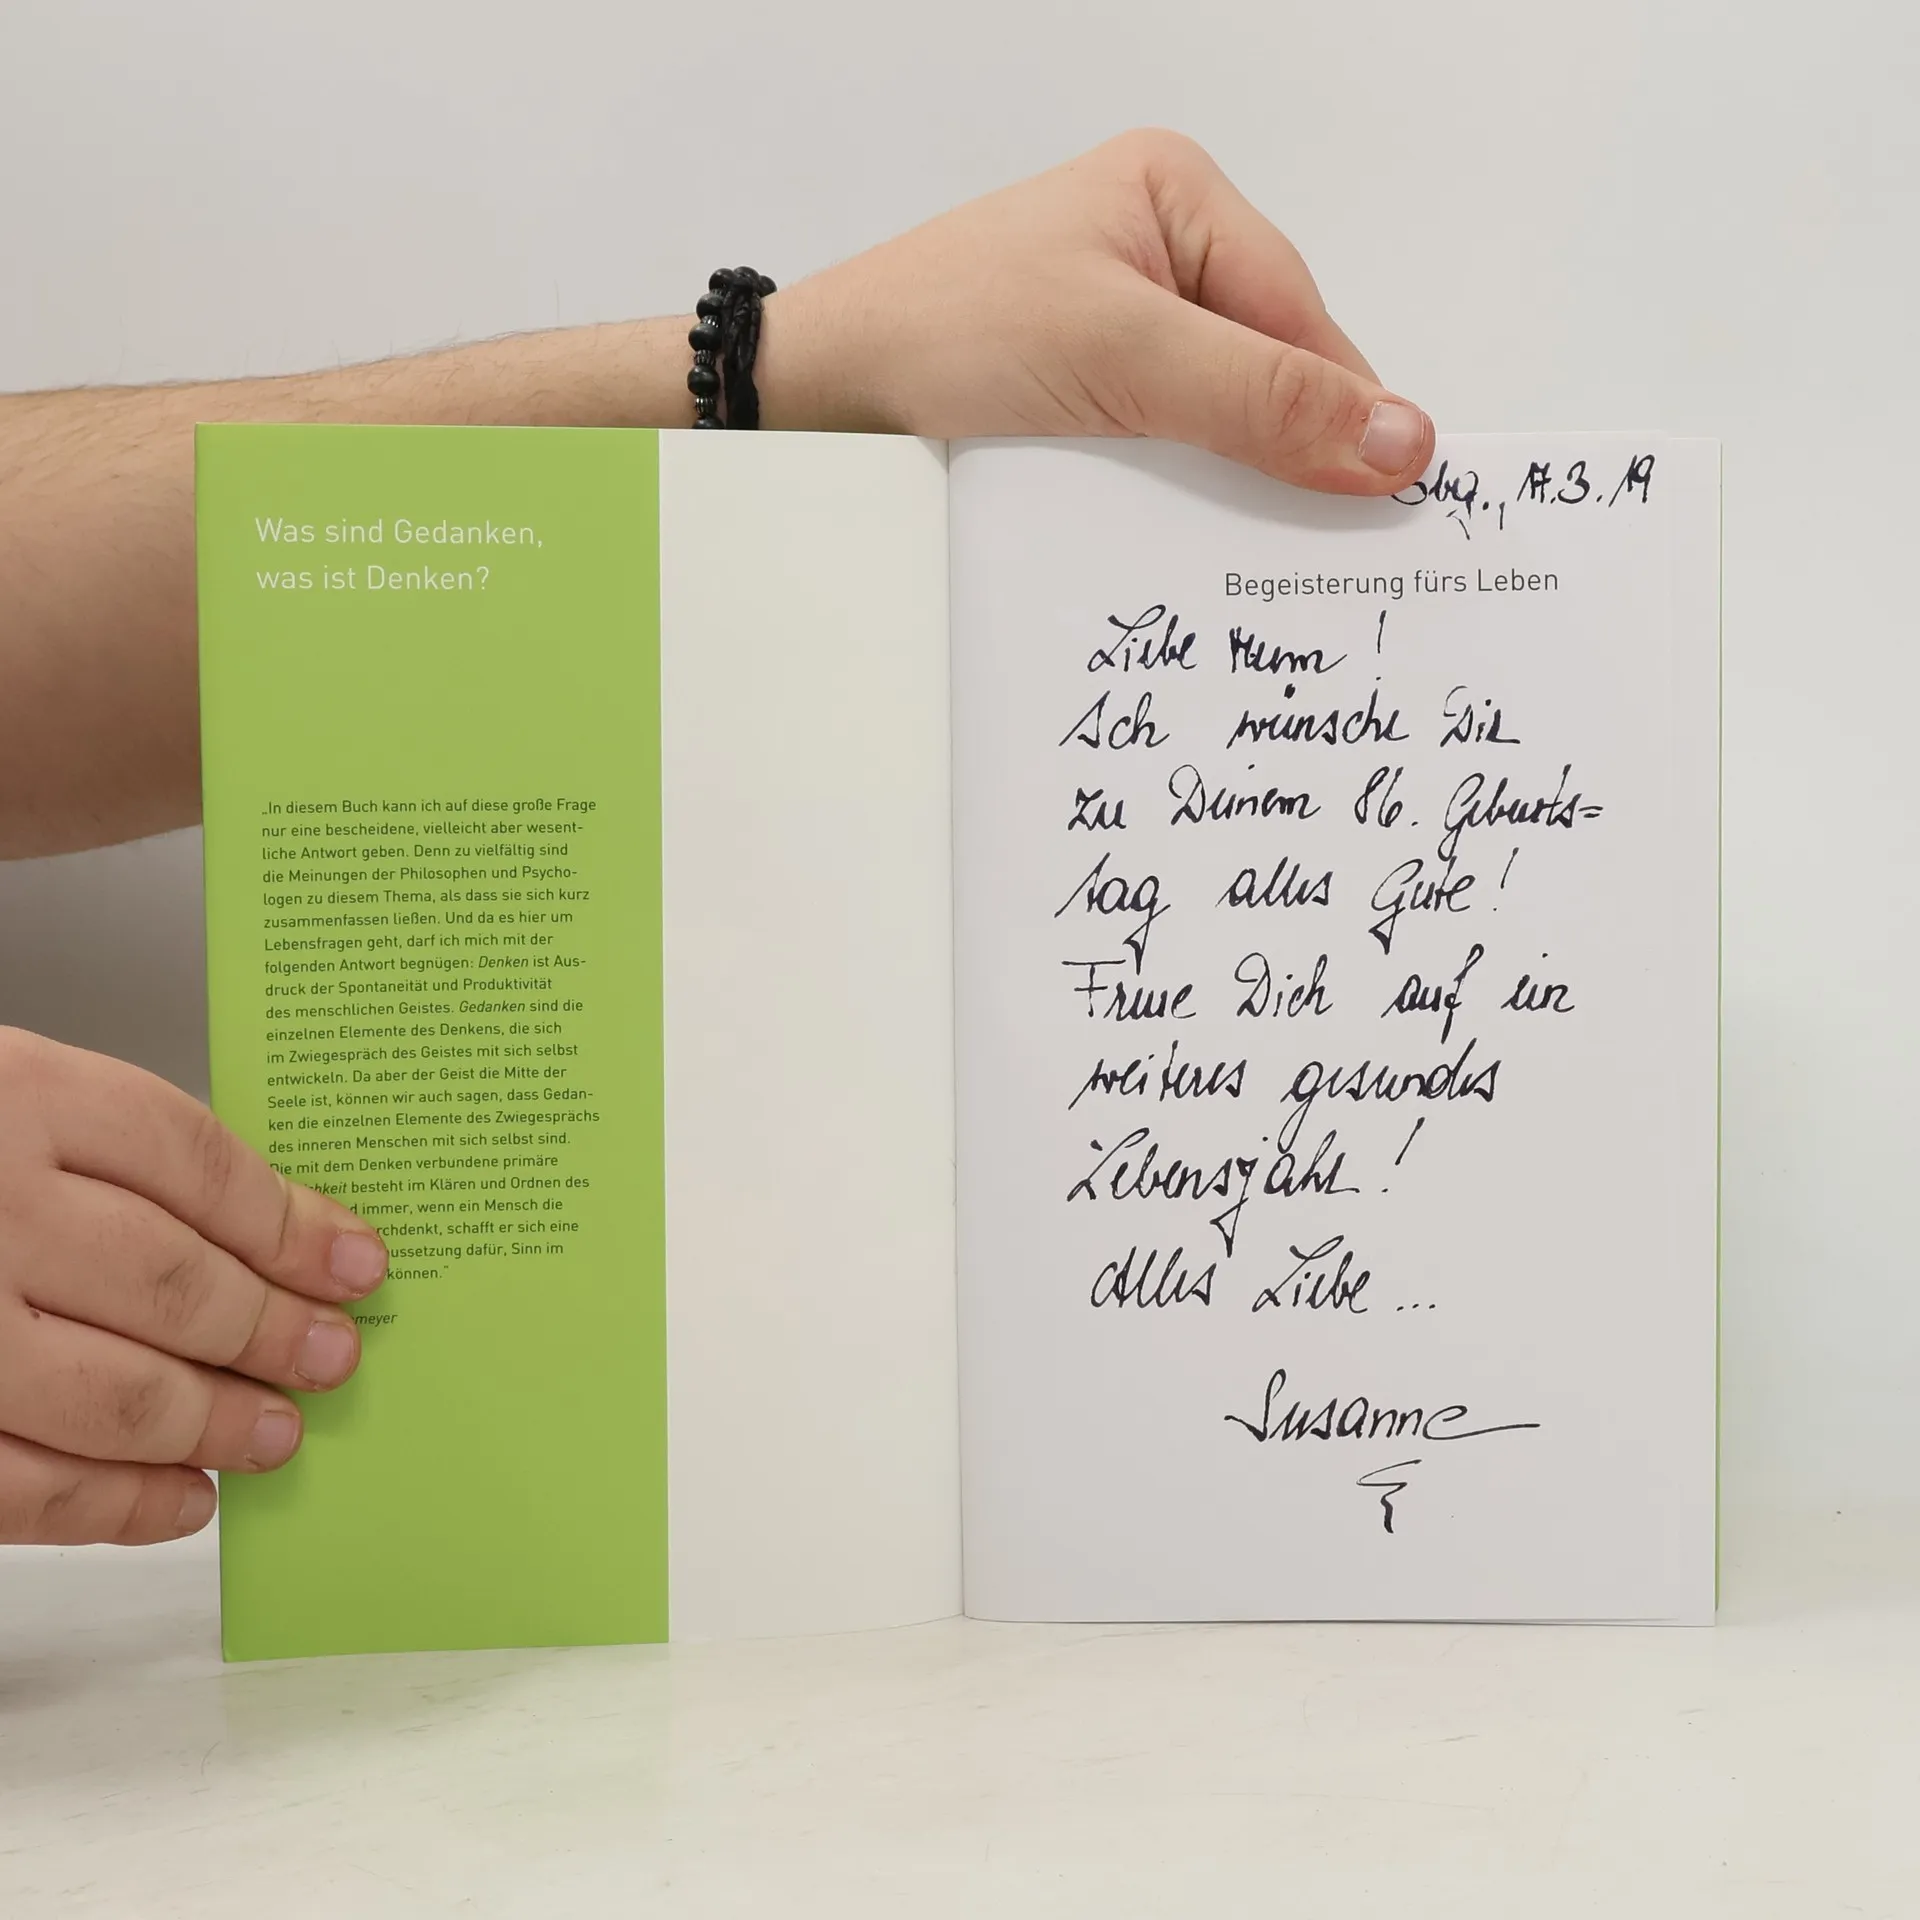 Was sind Gedanken,
was ist Denken?
„In diesem Buch kann ich auf diese große Frage
nur eine bescheidene, vielleicht aber wesent-
liche Antwort geben. Denn zu vielfältig sind
die Meinungen der Philosophen und Psycho-
logen zu diesem Thema, als dass sie sich kurz
zusammenfassen ließen. Und da es hier um
Lebensfragen geht, darf ich mich mit der
folgenden Antwort begnügen: Denken ist Aus-
druck der Spontaneität und Produktivität
des menschlichen Geistes. Gedanken sind die
einzelnen Elemente des Denkens, die sich
im Zwiegespräch des Geistes mit sich selbst
entwickeln. Da aber der Geist die Mitte der
Seele ist, können wir auch sagen, dass Gedan-
ken die einzelnen Elemente des Zwiegesprächs
des inneren Menschen mit sich selbst sind.
Die mit dem Denken verbundene primäre
besteht im Klären und Ordnen des
immer, wenn ein Mensch die
schafft er sich eine
dafür, Sinn im
können.“
17.3.19
Begeisterung fürs Leben
Liebe Mum!
Ich wünsche Dir
zu Deinem 86. Geburts=
tag alles Gute!
Freue Dich auf ein
weiteres gesundes
Lebensjahr!
Alles Liebe ...
Susanne